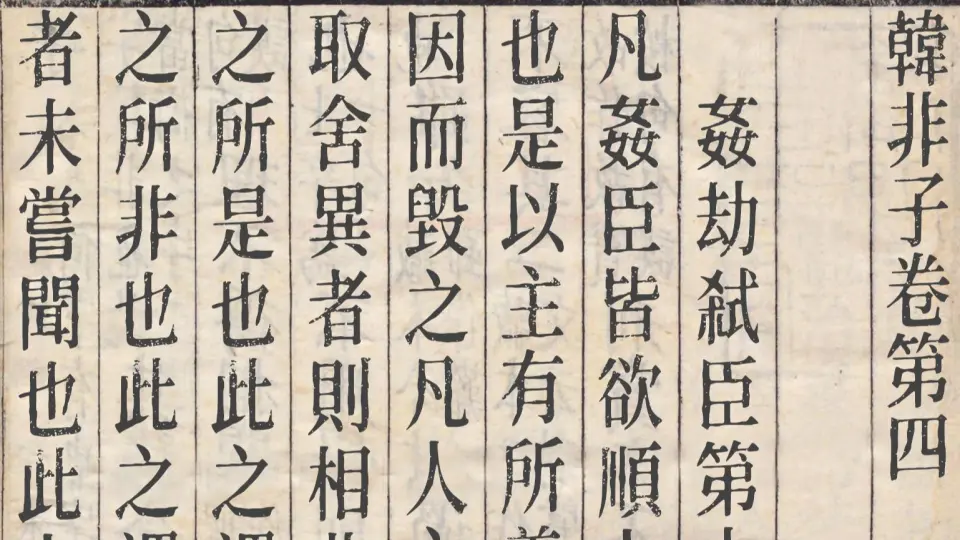 韓非子卷第四
姦劫弑臣第
凡姦臣皆欲順
也是以主有所
因而毀之凡人
取舍異者則相
之所是也此之
之所非也此之
者未嘗聞也此